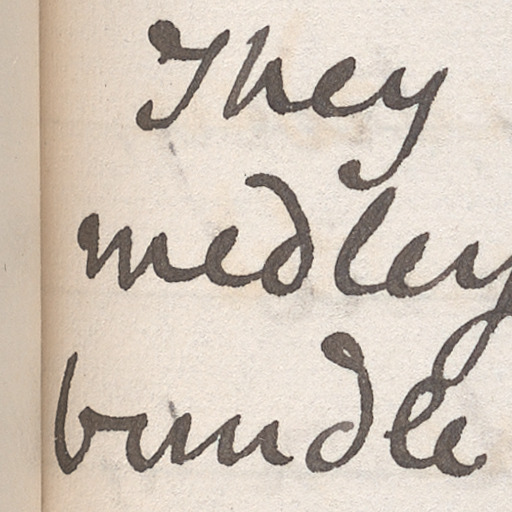 They
medley
bundle